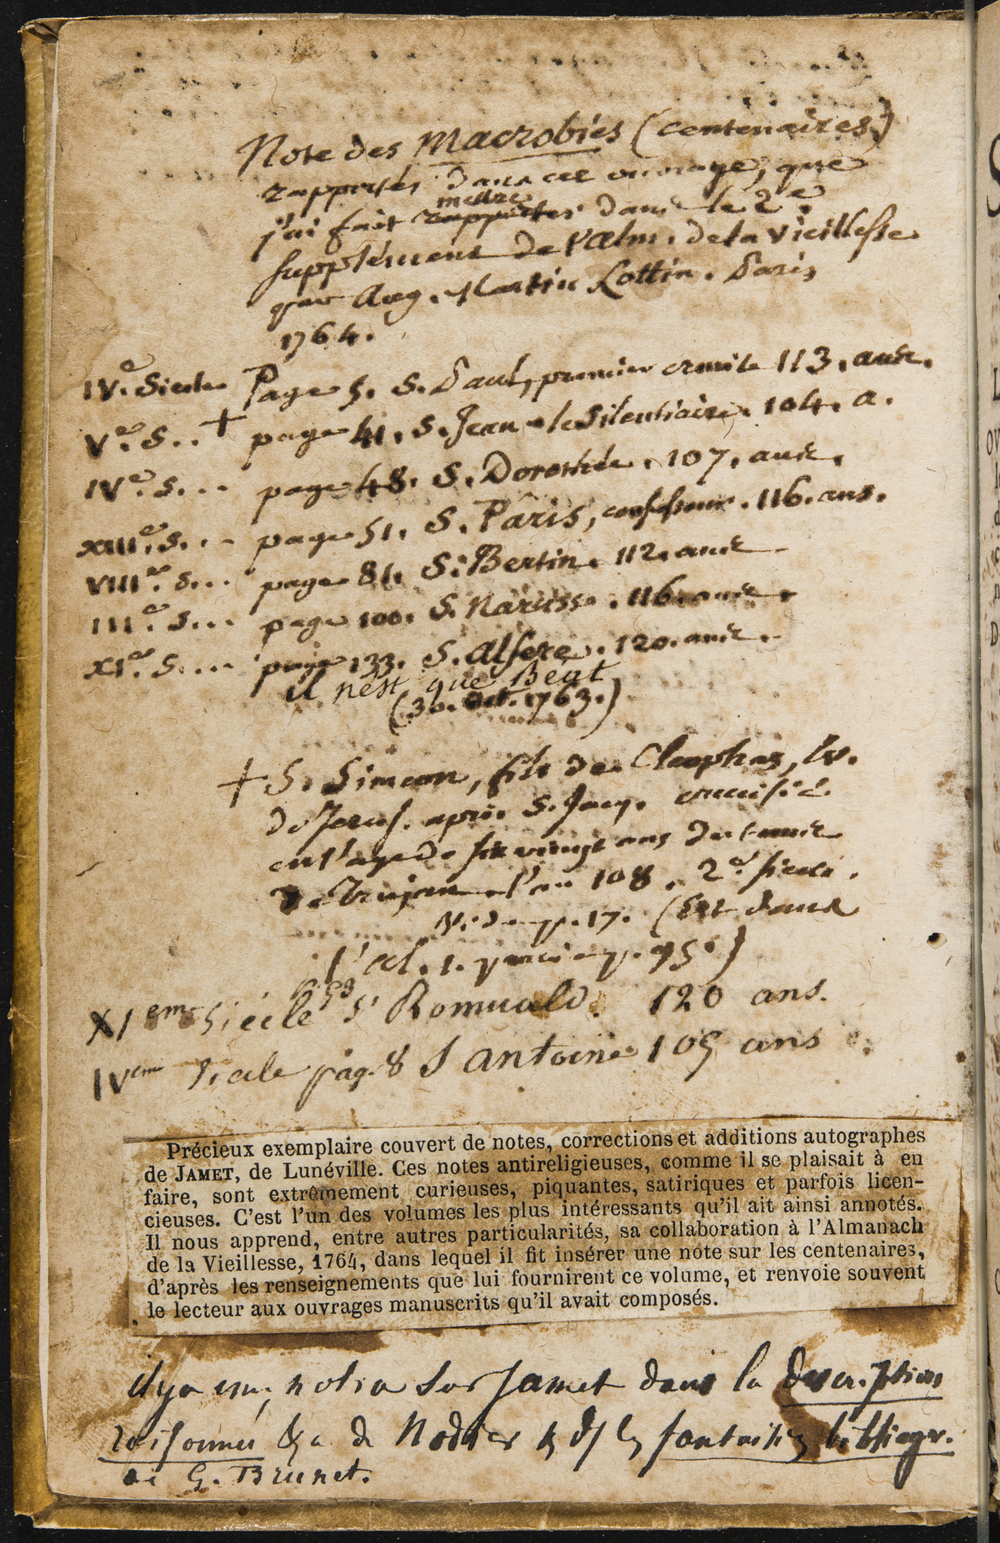 Note des Macrobies (centenaires)
rapportés dans cet ouvrage, que
j'ai fait mettre dans le 2e
supplément de l'Alm. de la Vieillesse
par Aug. Martin Lottin. Paris
1764.
IVe. Siecle Page 5. S. Paul, premier ermite 113. ans.
Ve. S. . + page 41. S. Jean le Silentiaire. 104. a.
IVe. S. . . page 48. S. Dorothée. 107. ans.
XIIIe. S. . . page 51. S. Pâris, confesseur. 116. ans.
VIIIe. S. . . page 81. S. Bertin. 112. ans.
IIIe. S. . . page 100. S. Narcisse. 116. ans.
XIe. S. . . . page 133. S. Alfere. 120. ans.
il n'est que Béat
(30. Oct. 1763.)
+ S. Simeon, fils de Cleophas, Ev.
de Jerus. après S. Jacq. crucifié
en l'age de six vingt ans du tems
de Trajan l'an 108. 2e siecle.
Vide p. 17. (Est dans
l'Al. 1. p. 95.)
XIeme Siécle p. 53 St Romuald. 120 ans.
IVeme Siecle pag. 8 S antoine 105 ans
Précieux exemplaire couvert de notes, corrections et additions autographes
de JAMET, de Lunéville. Ces notes antireligieuses, comme il se plaisait à en
faire, sont extrêmement curieuses, piquantes, satiriques et parfois licen-
cieuses. C'est l'un des volumes les plus intéressants qu'il ait ainsi annotés.
Il nous apprend, entre autres particularités, sa collaboration à l'Almanach
de la Vieillesse, 1764, dans lequel il fit insérer une note sur les centenaires,
d'après les renseignements que lui fournirent ce volume, et renvoie souvent
le lecteur aux ouvrages manuscrits qu'il avait composés.
il y a une notice sur Jamet dans la description
raisonnée &a de Nodier & ds les fantaisies bibliogr.
de G. Brunet.